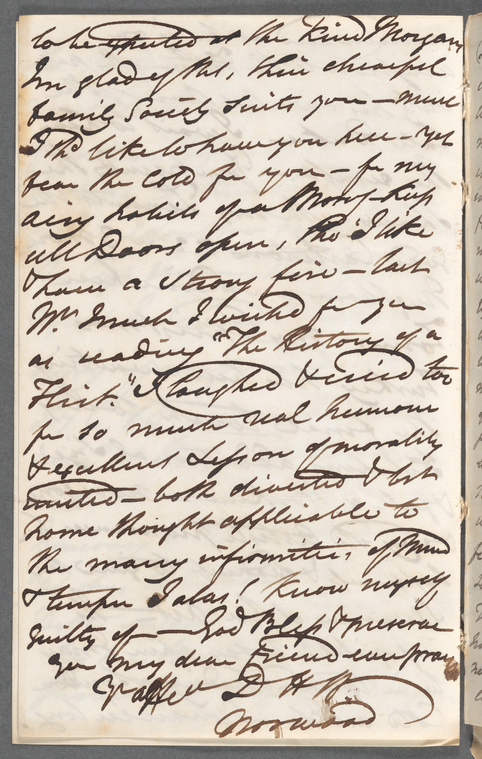 to be at the kind Morgans
Im glad of tht, their cheerful
family Society suits you – much
I shd like to have you here – yet
fear the Cold for you – for my
airy habits of a Morng keep
all Doors open, tho' I like
& have a strong fire – last
Wk Much I wished for you
as reading "The History of a
Flirt." I laughed & cried too
for so much real humour
& excellent Lesson of morality
united – both diverted & brt
home thought applicable to
the many infirmities of Mind
& temper I alas! know myself
guilty of – God Bless & preserve
you my dear Friend ever pray
Yr affec D H B
Norwood